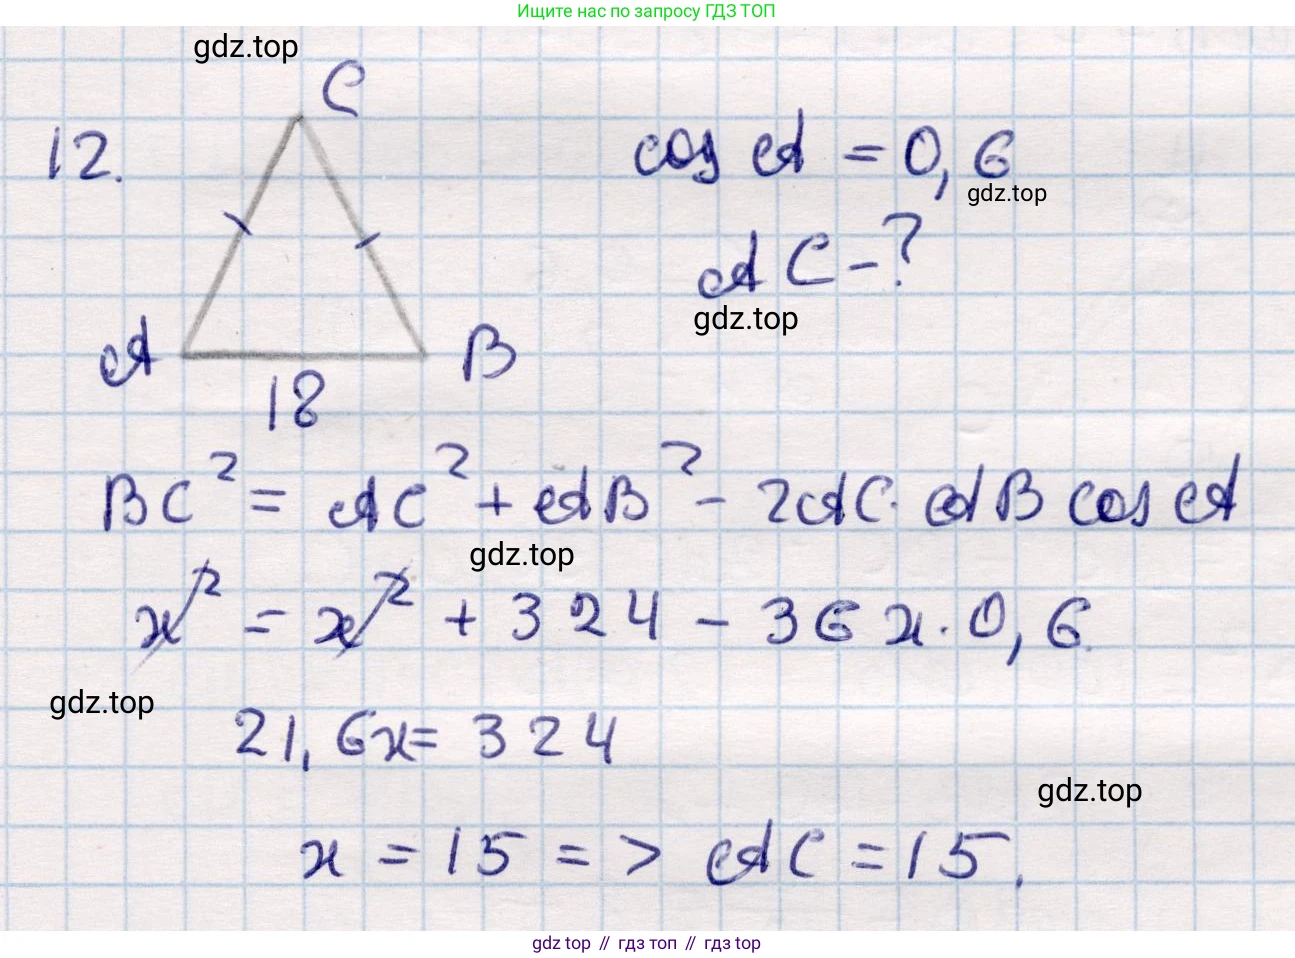 Ищите нас по запросу ГДЗ ТОП
gdz.top
C
12.
cos A = 0,6
gdz.top
AC - ?
gdz.top
A
B
18
BC² = AC² + AB² - 2AC · AB cos A
gdz.top
x² = x² + 324 - 36x · 0,6
gdz.top
21,6x = 324
gdz.top
x = 15 => AC = 15.
gdz top // гдз топ // гдз top